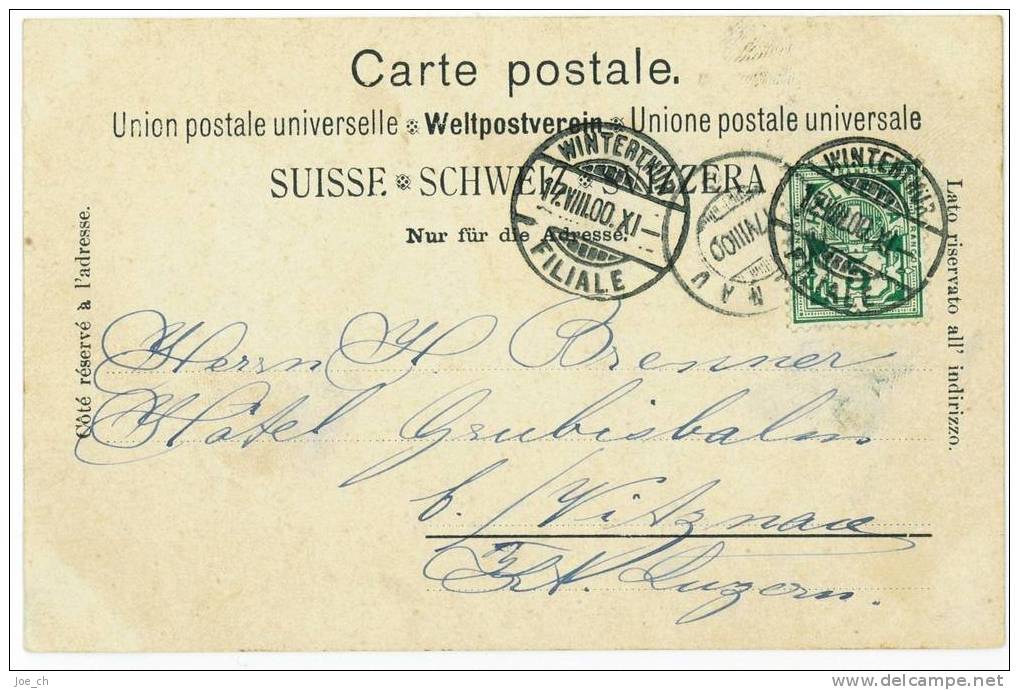 Carte postale.
Union postale universelle Weltpostverein Unione postale universale
SUISSE SCHWEIZ SVIZZERA
Nur für die Adresse.
Côté réservé à l'adresse.
Lato riservato all' indirizzo.
WINTERTHUR
12.VIII.00. IX
FILIALE
NAU
WINTERTHUR
12.VIII.00. IX
FILIALE
Herrn H. Brenner
Hôtel Grubisbalm
b./Vitznau
Kt. Luzern.
Joe_ch
www.delcampe.net